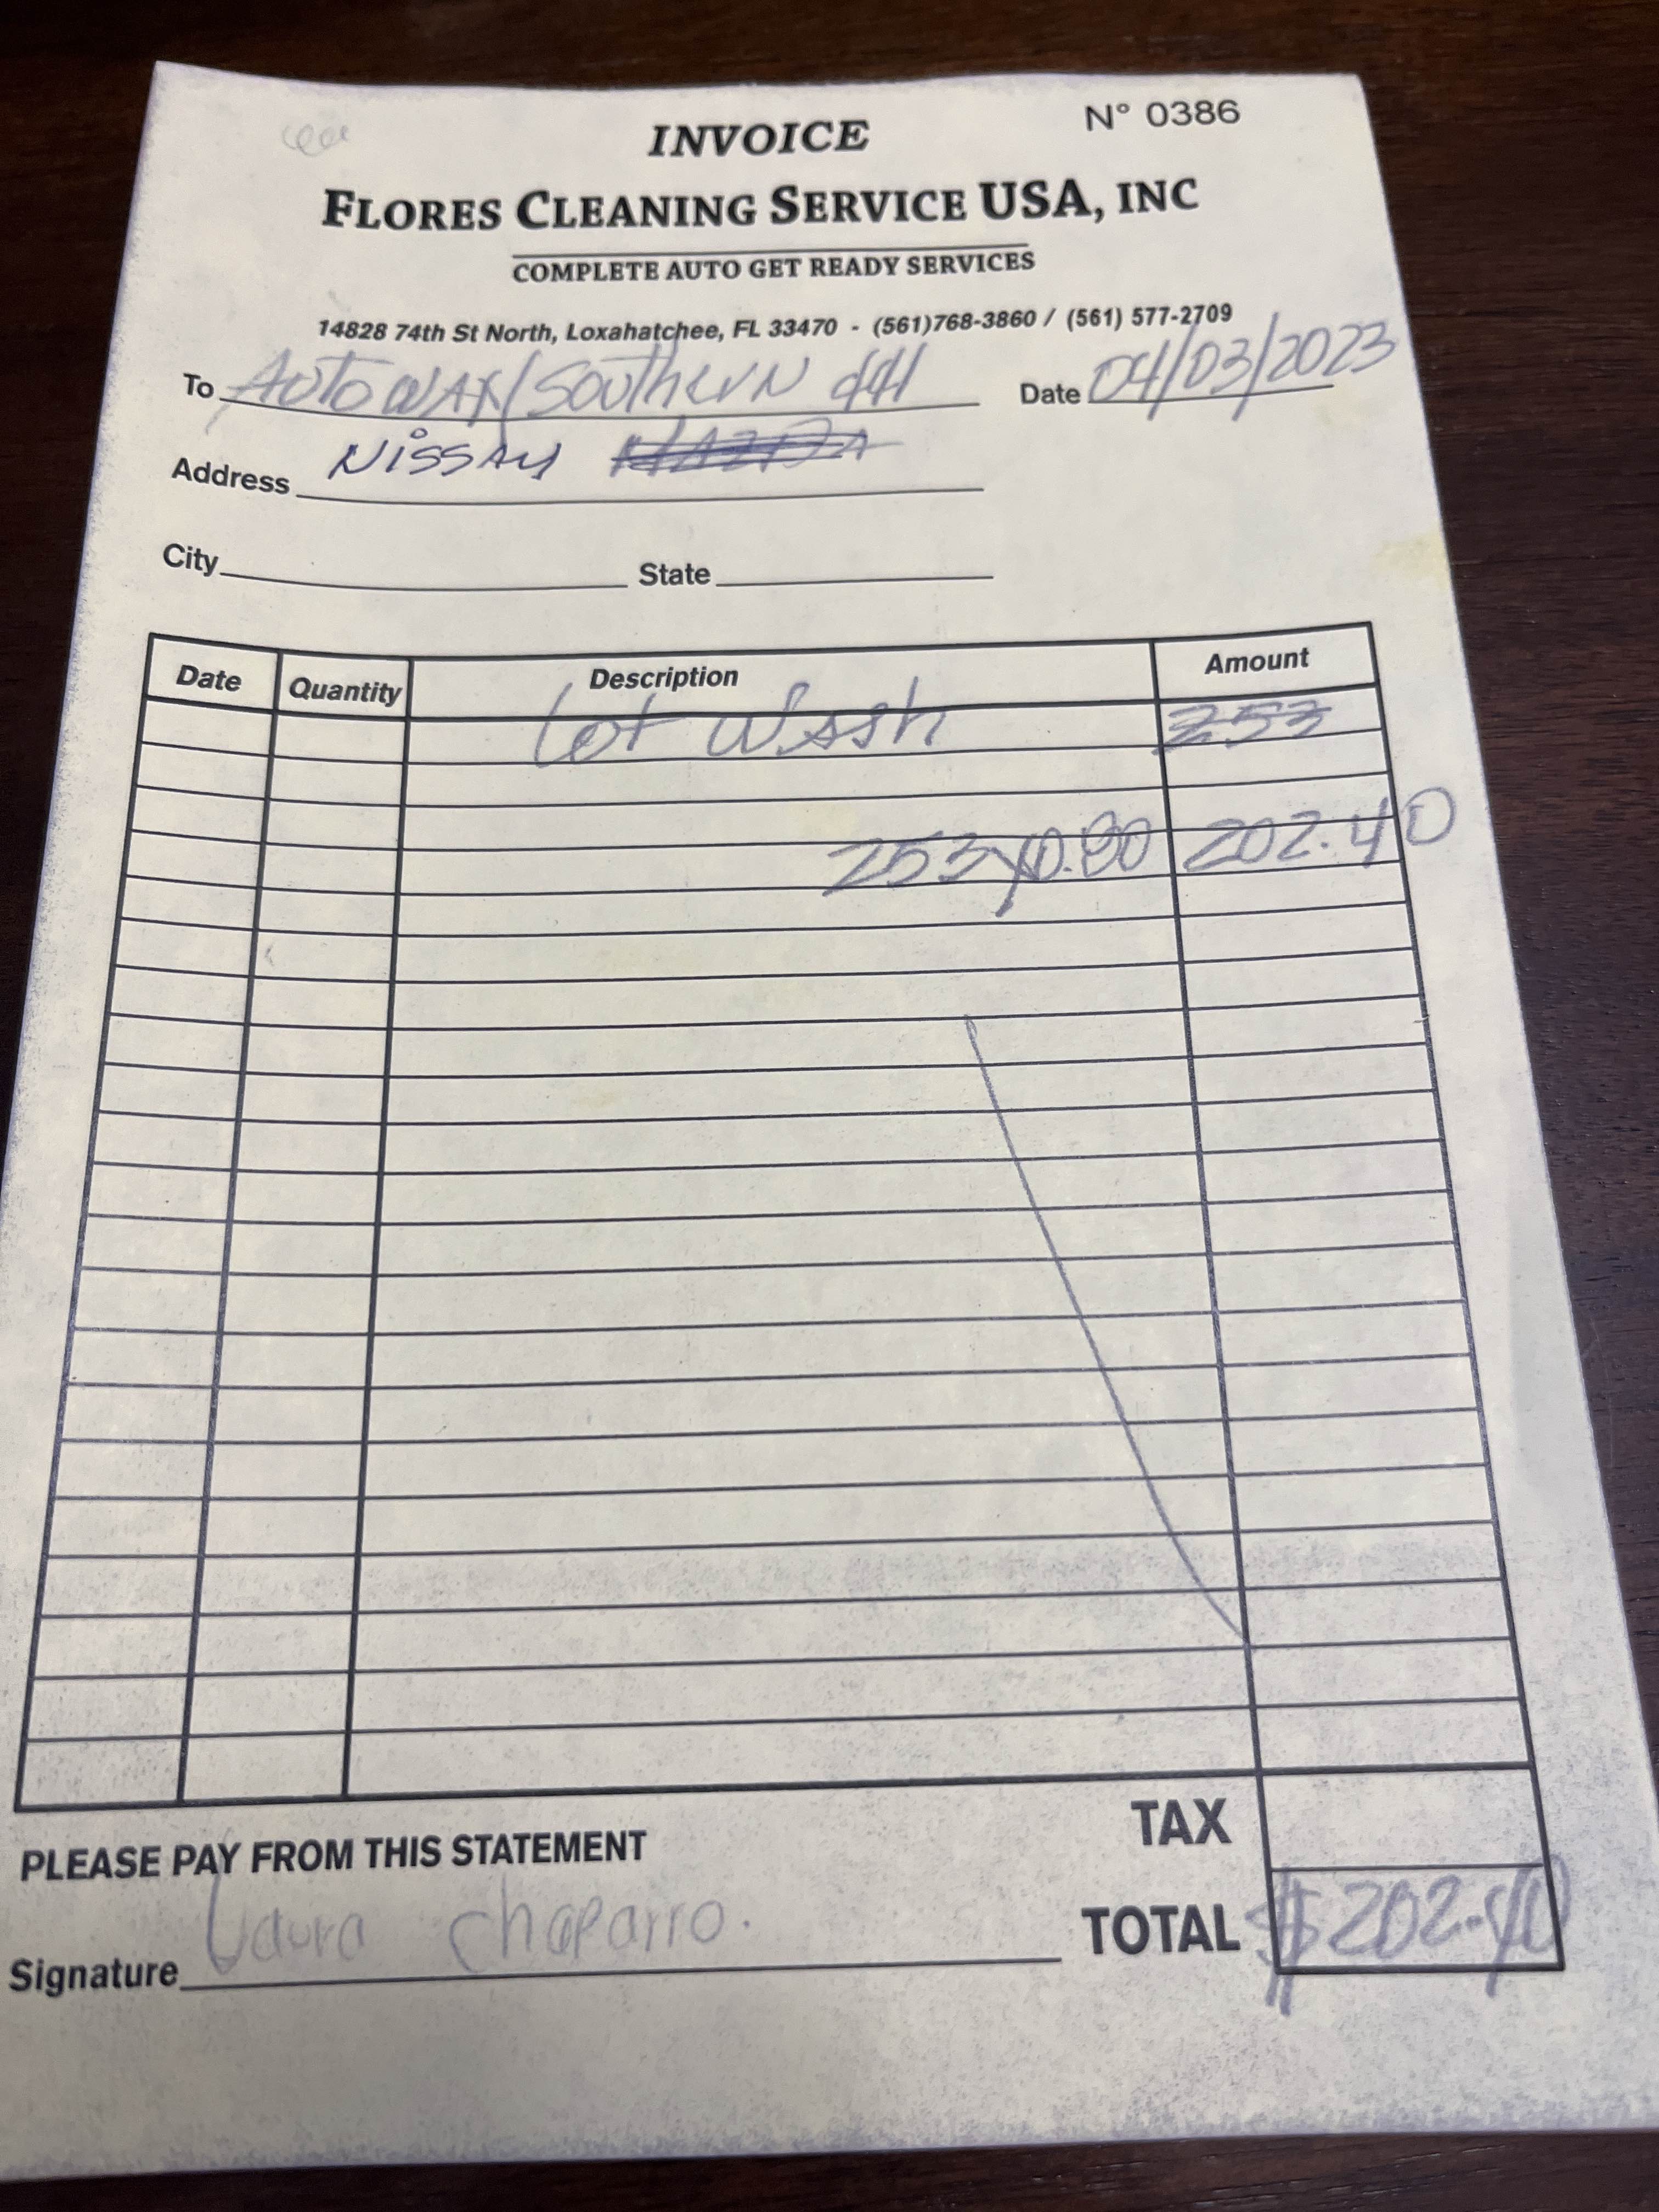 INVOICE
N° 0386
FLORES CLEANING SERVICE USA, INC
COMPLETE AUTO GET READY SERVICES
14828 74th St North, Loxahatchee, FL 33470 - (561)768-3860 / (561) 577-2709
To AUTO WAX/Southern 441 Date 04/03/2023
Address Nissan MAZDA
City State
Date Quantity Description Amount
Lot Wash 253
253x0.80 202.40
TAX
PLEASE PAY FROM THIS STATEMENT
TOTAL $202.40
Signature Laura Chaparro.